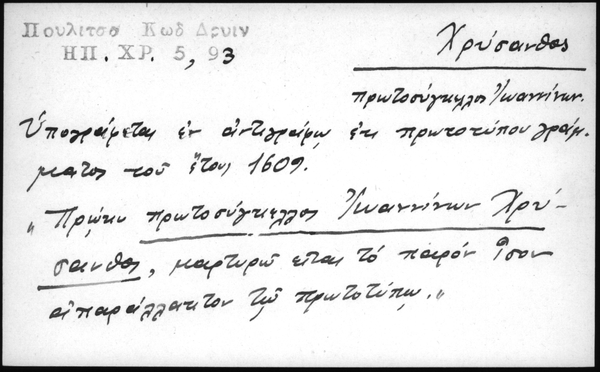 Πουλιτσα Κωδ Δρυιν
ΗΠ. ΧΡ. 5, 93
Χρύσανθος
πρωτοσύγκελλος Ἰωαννίνων.
Ὑπογράφεται ἐν ἀντιγράφῳ ἐκ πρωτοτύπου γράμ-
ματος τοῦ ἔτους 1609.
„ Πρώην πρωτοσύγκελλος Ἰωαννίνων Χρύ-
σανθος, μαρτυρῶ εἶναι τὸ παρὸν ἴσον
ἀπαράλλακτον τῷ πρωτοτύπῳ.„